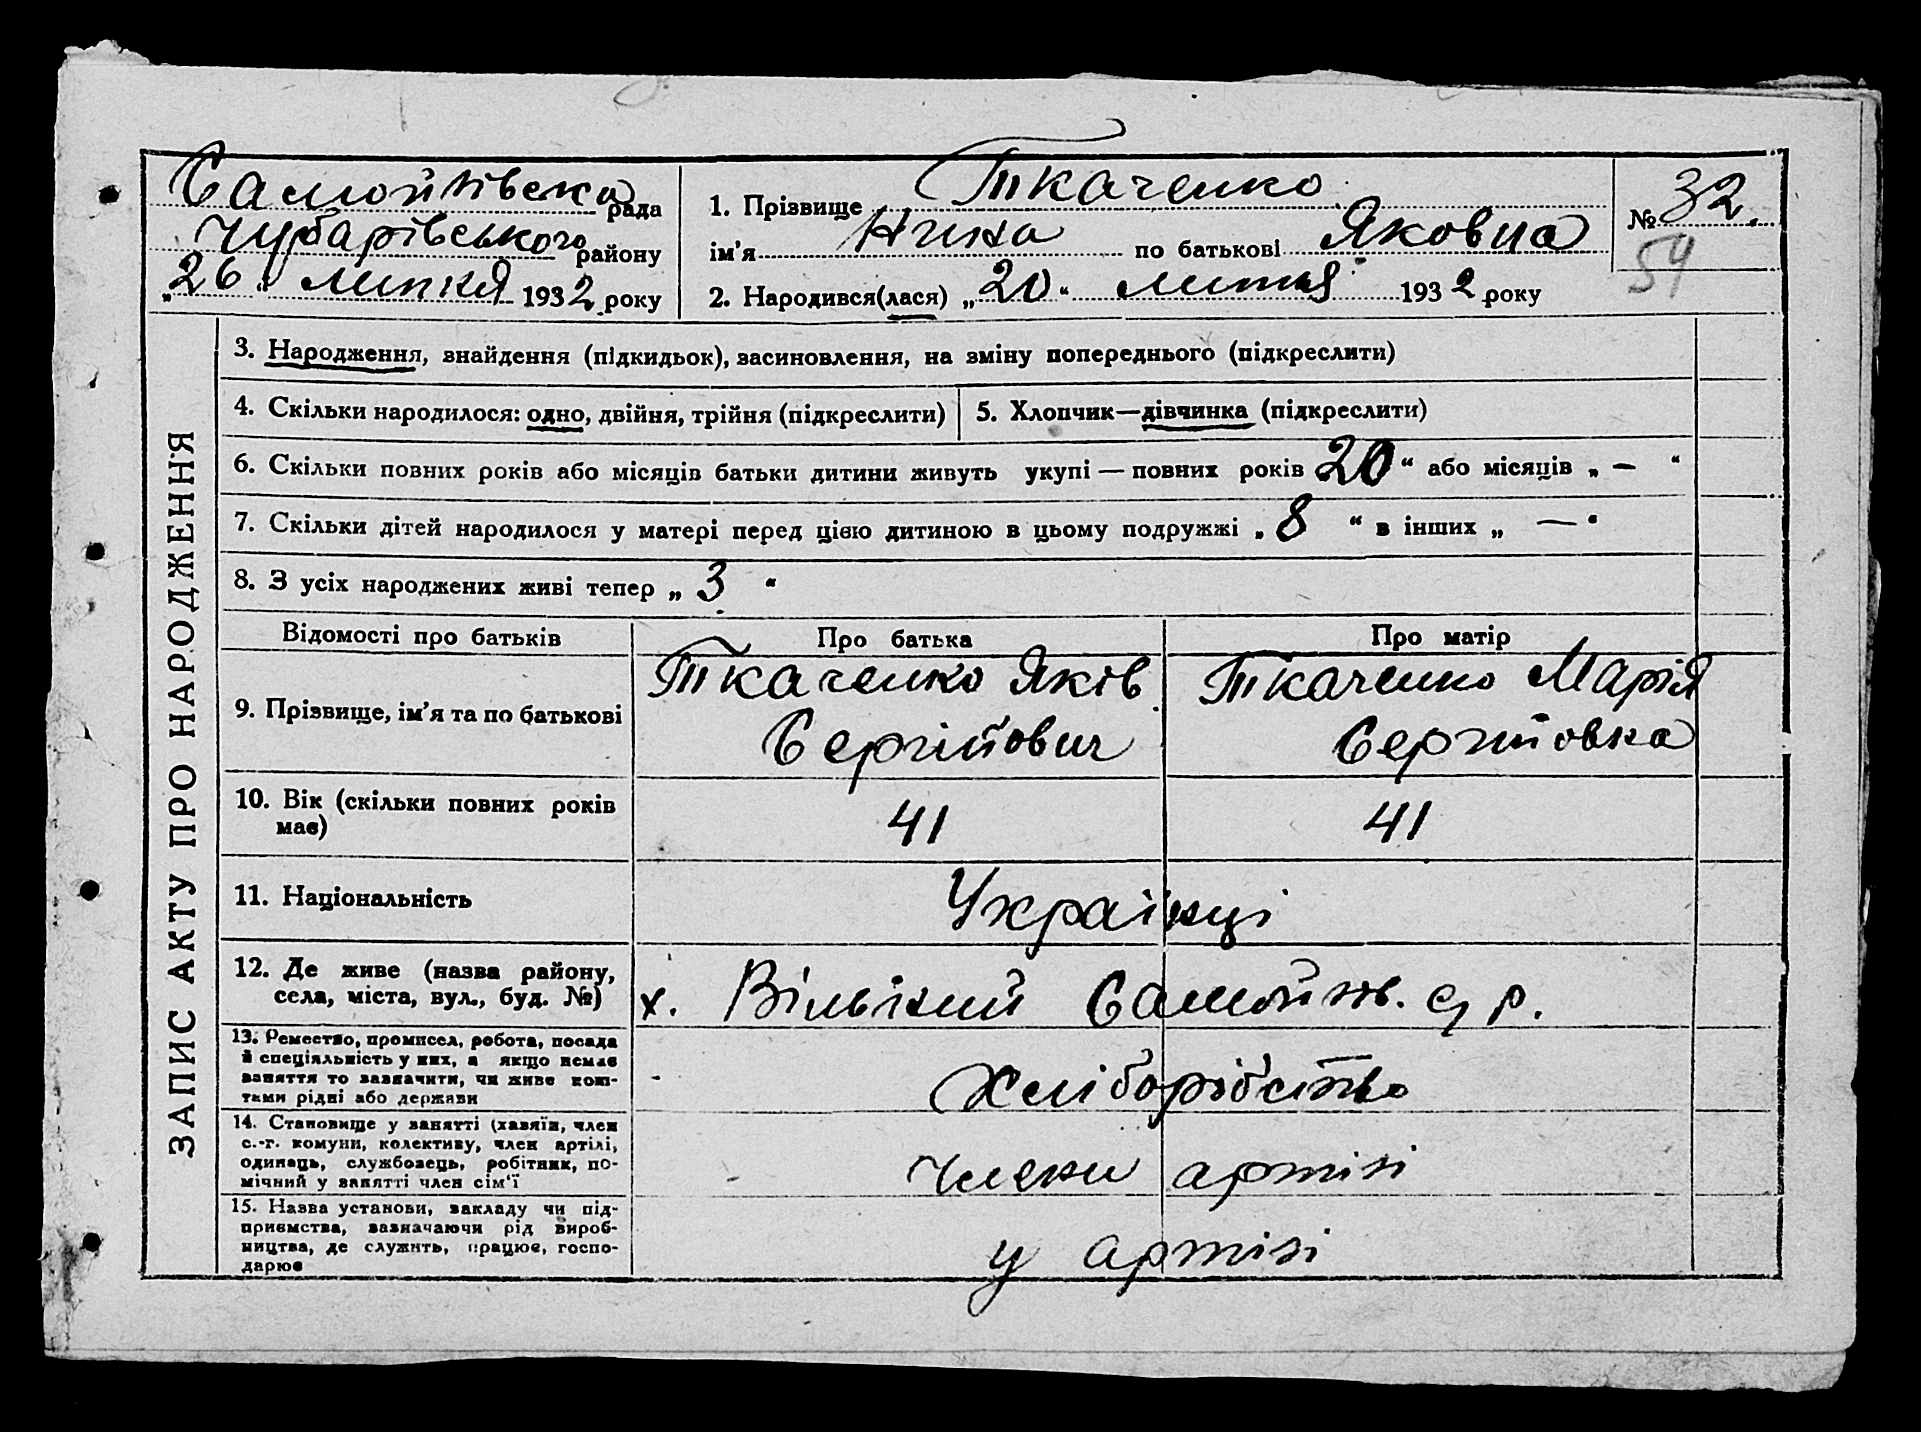 Самойлівска рада
Чубарівського району
„26“ липня 1932 року
1. Прізвище Ткаченко
ім’я Нина по батькові Яковна
2. Народився(лася) „20“ липня 1932 року
№ 32.
54
ЗАПИС АКТУ ПРО НАРОДЖЕННЯ
3. Народження, знайдення (підкидьок), засиновлення, на зміну попереднього (підкреслити)
4. Скільки народилося: одно, двійня, трійня (підкреслити)
5. Хлопчик—дівчинка (підкреслити)
6. Скільки повних років або місяців батьки дитини живуть укупі — повних років 20 “ або місяців „ — “
7. Скільки дітей народилося у матері перед цією дитиною в цьому подружжі „ 8 “ в інших „ — “
8. З усіх народжених живі тепер „ 3 “
Відомості про батьків
Про батька
Про матір
9. Прізвище, ім’я та по батькові
Ткаченко Яків
Сергійович
Ткаченко Марія
Сергийовна
10. Вік (скільки повних років
має)
41
41
11. Національність
Українці
12. Де живе (назва району,
села, міста, вул., буд. №)
х. Вільний Самойлів. с/р.
13. Ремество, промисел, робота, посада
й спеціяльність у них, а якщо немає
заняття то зазначити, чи живе кош-
тами рідні або держави
Хліборобство
14. Становище у занятті (хазяїн, член
с.-г. комуни, колективу, член артілі,
одинець, службовець, робітник, по-
мічний у занятті член сім’ї
Члени артілі
15. Назва установи, закладу чи під-
приємства, зазначаючи рід вироб-
ництва, де служить, працює, госпо-
дарює
у артілі